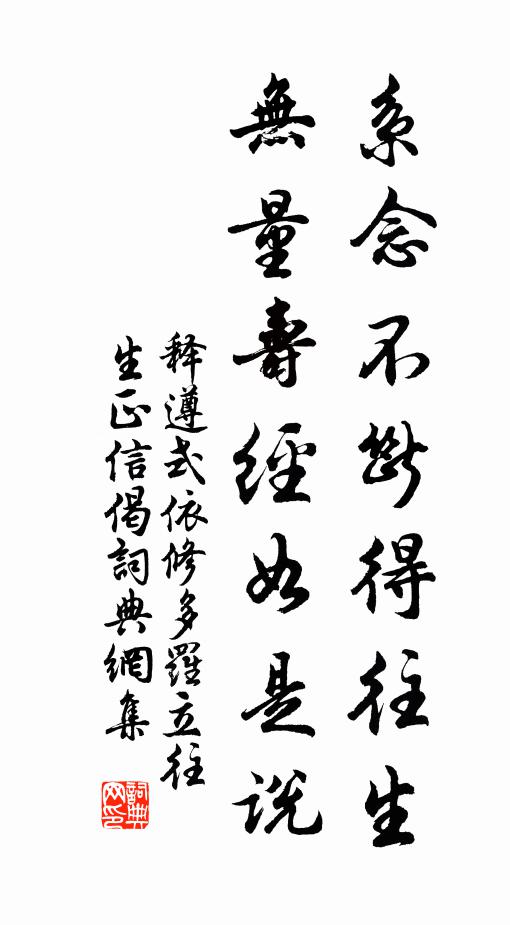 系念不斷得往生
無量壽經如是説
释遵式依修多羅立往
生正信偈詞典網集
詞典网印